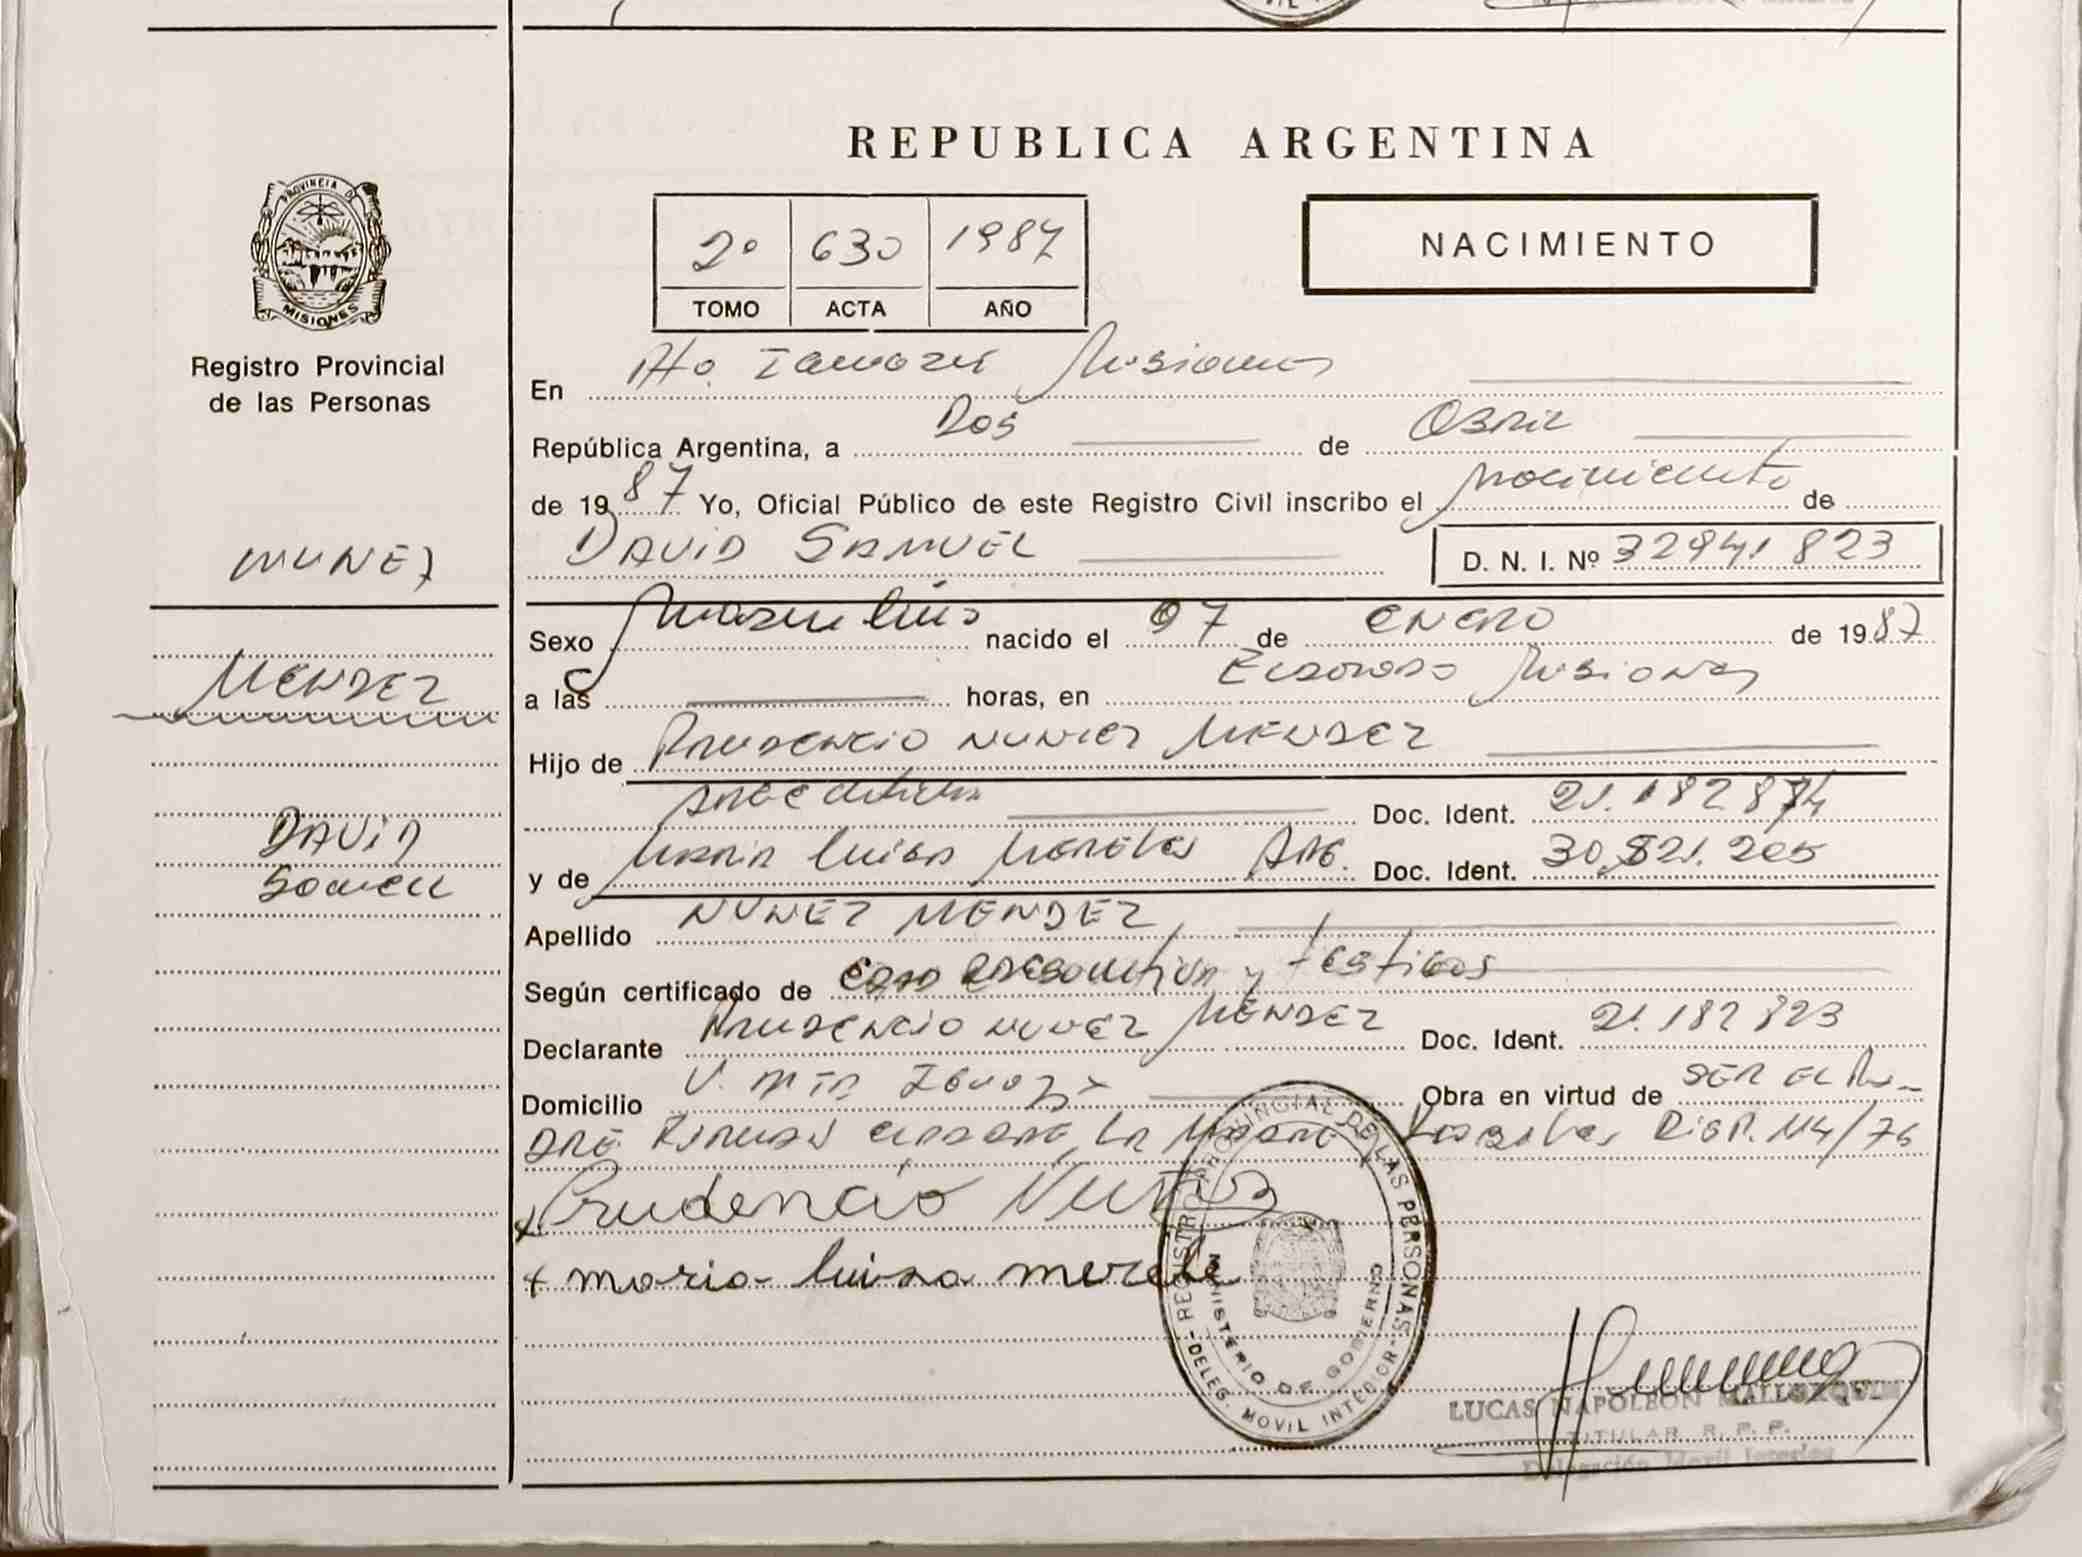 REPUBLICA ARGENTINA
PROVINCIA DE
MISIONES
Registro Provincial
de las Personas
2º 630 1987
TOMO ACTA AÑO
NACIMIENTO
En Pto. Misiones
República Argentina, a Dos de Abril
de 1987 Yo, Oficial Público de este Registro Civil inscribo el nacimiento de
NUNEZ
DAVID SAMUEL D. N. I. Nº 32941823
Sexo Masculino nacido el 07 de ENERO de 1987
MENDEZ
a las horas, en Eldorado Misiones
Hijo de Prudencio Nunez MENDEZ
Argentino Doc. Ident. 21.182874
DAVID
Samuel
y de Maria Luisa Mereles ARG. Doc. Ident. 30.821.205
Apellido NUNEZ MENDEZ
Según certificado de y testigos
Declarante Prudencio Nunez MENDEZ Doc. Ident. 21.182823
Domicilio Obra en virtud de SER EL Pa-
DRE La Madre Disp. 114/76
x Prudencio Nuñez
x maria luisa merele
REGISTRO PROVINCIAL DE LAS PERSONAS
MINISTERIO DE GOBIERNO
-DELEG. MOVIL INTERIOR-
LUCAS NAPOLEON MALLORQUIN
TITULAR R. P. P.
Delegación Movil Interior